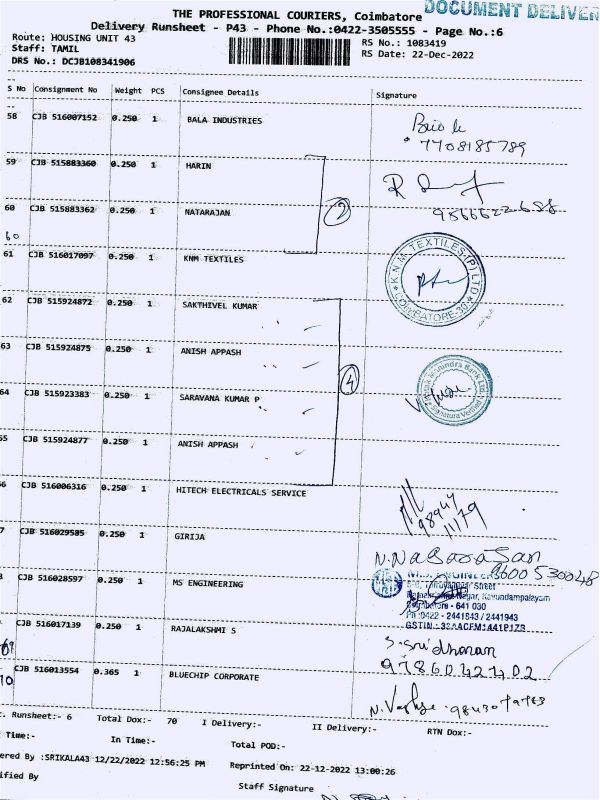 DOCUMENT DELIVER
THE PROFESSIONAL COURIERS, Coimbatore
Delivery Runsheet - P43 - Phone No.:0422-3505555 - Page No.:6
Route: HOUSING UNIT 43
Staff: TAMIL
DRS No.: DCJB108341906
RS No.: 1083419
RS Date: 22-Dec-2022
S No Consignment No Weight PCS Consignee Details Signature
58 CJB 516007152 0.250 1 BALA INDUSTRIES
7708185789
59 CJB 515883360 0.250 1 HARIN
2
60 CJB 515883362 0.250 1 NATARAJAN
60
61 CJB 516017097 0.250 1 KNM TEXTILES
K.N.M. TEXTILES (P) LTD COIMBATORE-30
62 CJB 515924872 0.250 1 SAKTHIVEL KUMAR
63 CJB 515924875 0.250 1 ANISH APPASH
4
Mahindra Bank Ltd
Signature Verified
64 CJB 515923383 0.250 1 SARAVANA KUMAR P
55 CJB 515924877 0.250 1 ANISH APPASH
56 CJB 516006316 0.250 1 HITECH ELECTRICALS SERVICE
98944
11179
7 CJB 516029585 0.250 1 GIRIJA
N. Nagarasan
9600530048
CJB 516028597 0.250 1 MS ENGINEERING
Street
Nagar, Kavundampalayam
- 641 030
Ph :0422 - 2441843 / 2441943
CJB 516017139 0.250 1 RAJALAKSHMI S
S. Sridharan
9786042402
69
CJB 516013554 0.365 1 BLUECHIP CORPORATE
70
. Runsheet:- 6 Total Dox:- 70 I Delivery:- II Delivery:- RTN Dox:-
Time:- In Time:- Total POD:-
ered By :SRIKALA43 12/22/2022 12:56:25 PM Reprinted On: 22-12-2022 13:00:26
ified By Staff Signature